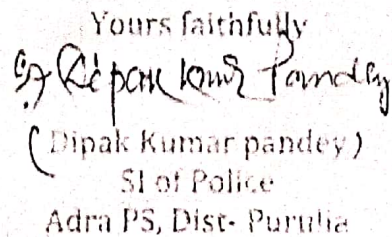 Yours faithfully
Dipak Kumar Pandey
(Dipak Kumar pandey)
SI of Police
Adra PS, Dist- Purulia